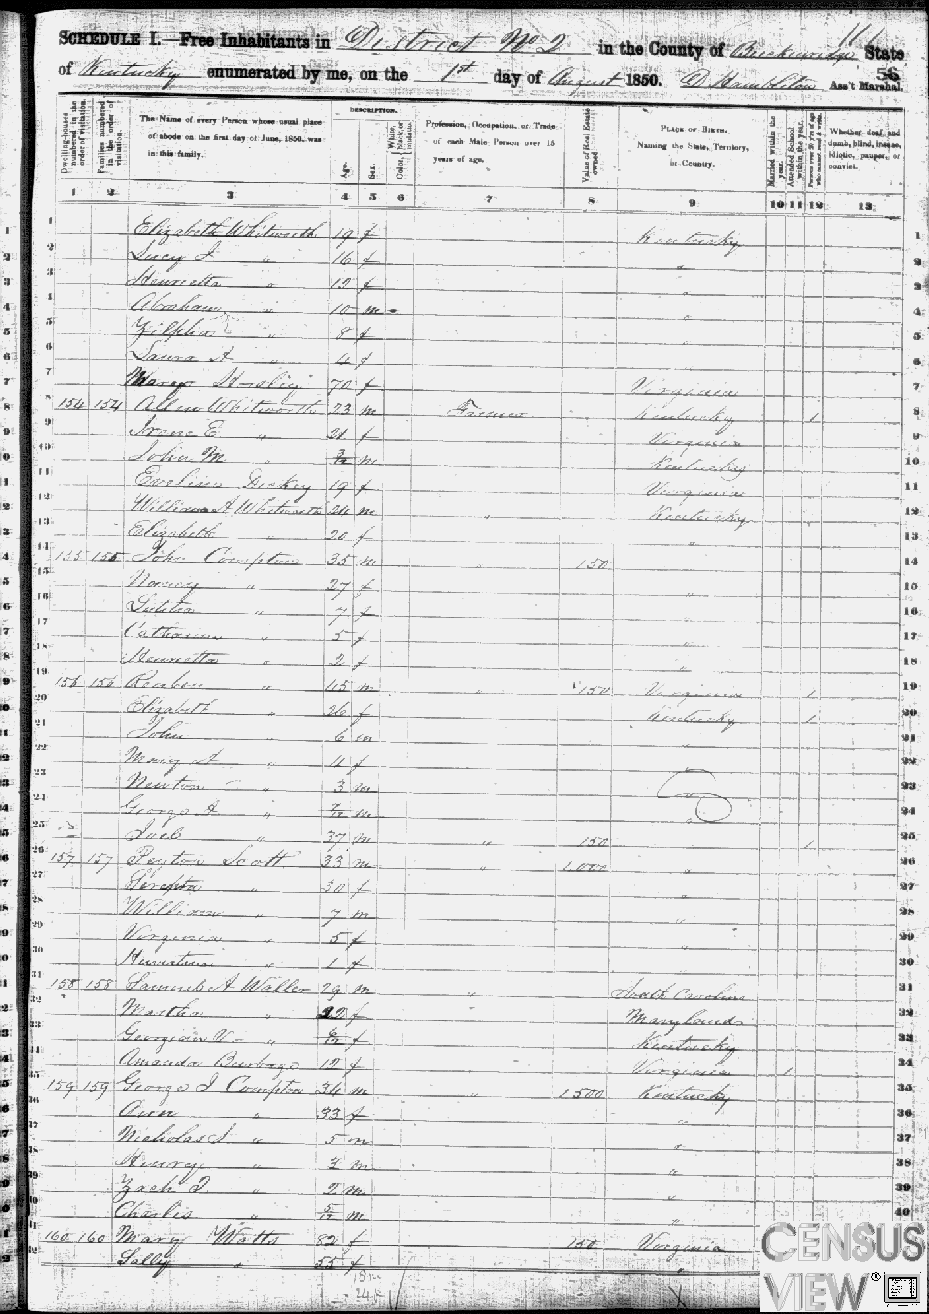 SCHEDULE I.—Free Inhabitants in District No 2 in the County of Breckenridge State
of Kentucky enumerated by me, on the 1st day of August 1850. D Hambleton Ass't Marshal.
DESCRIPTION.
Dwelling-houses numbered in the order of visitation. Families numbered in the order of visitation. The Name of every Person whose usual place of abode on the first day of June, 1850, was in this family. Age. Sex. Color, White, black, or mulatto. Profession, Occupation, or Trade of each Male Person over 15 years of age. Value of Real Estate owned PLACE OF BIRTH. Naming the State, Territory, or Country. Married within the year. Attended School within the year. Persons over 20 y'rs of age who cannot read & write. Whether deaf and dumb, blind, insane, idiotic, pauper, or convict.
1 2 3 4 5 6 7 8 9 10 11 12 13
1 Elizabeth Whitworth 19 f Kentucky 1
2 Lucy J " 16 f " 2
3 Henrietta " 12 f " 3
4 Abraham " 10 m " 4
5 " 8 f " 5
6 Laura A " 4 f 6
7 Mary 70 f Virginia 7
8 154 154 Allen Whitworth 23 m Farmer Kentucky 1 8
9 E " 21 f Virginia 9
10 John M " m Kentucky 10
11 Evelina 19 f Virginia 11
12 William A Whitworth 24 m " Kentucky 12
13 Elizabeth " 20 f " 13
14 155 155 John Compton 35 m 150 14
15 Nancy " 27 f " 15
16 " 7 f " 16
17 Catharine " 5 f " 17
18 Henrietta " 2 f " 18
19 156 156 Reuben " 45 m " 150 Virginia 1 19
20 Elizabeth " 26 f Kentucky 1 20
21 John " 6 m " 21
22 Mary " 4 f 22
23 Newton " 3 m " 23
24 George " m " 24
25 " 37 m " 150 1 25
26 157 157 Peyton Scott 33 m " 1,000 " 26
27 " 30 f " 27
28 William " 7 m " 28
29 Virginia " 5 f " 29
30 " 1 f 30
31 158 158 Samuel A Waller 29 m " South Carolina 31
32 Martha " 22 f Maryland 32
33 " f Kentucky 33
34 Amanda Burbage 12 f Virginia 1 34
35 159 159 George J Compton 34 m " 1500 Kentucky 35
36 Ann " 33 f " 36
37 Nicholas " 5 m " 37
38 Henry " m " 38
39 Zach " 2 m " 39
40 Charles " m " 40
41 160 160 Mary Watts 82 f 150 Virginia
42 Sally " 55 f "
CENSUS
VIEW®